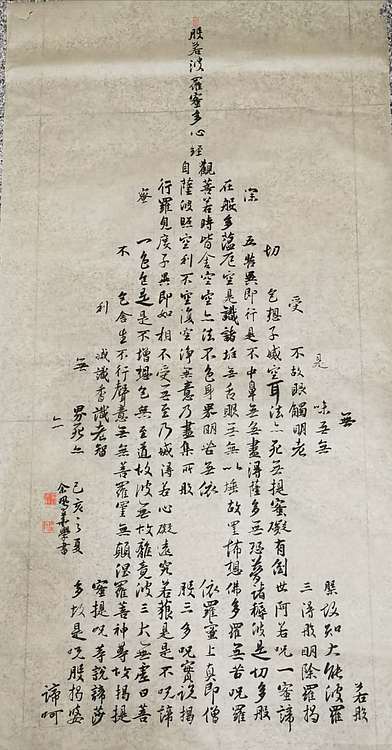 般若波羅蜜多心經
無
若般
味無無
故知大能波羅
三得般明除羅揭
不故眼觸明老
世阿若呪一蜜諦
切
色想子滅空耳法亦死無提蜜礙有倒
深
五皆異即行是不中鼻無無盡得薩多無恐夢諸稱波是切多般
在般多蘊厄空是識諸垢無舌眼無無以埵故罣怖想佛多羅無苦呪羅
觀菩若時皆舍空空亦法不色身界明苦無依
依羅蜜上真即僧
自薩波照空利不空復空淨無意乃盡集所般
般三多呪實說揭
行羅見度子異即如相不受無至乃滅得若心礙遠究若藐是是不呪諦
無
一色色是是不增想色無至道故波無故離竟波三大無虛曰菩
不
色舍生不行聲意無無菩羅罣無顛涅羅菩神等故揭提
利
滅識香識老智
蜜提呪等說諦莎
無
界死亦
多故是呪般揭婆
亦
諦呵
受
見
己亥之夏